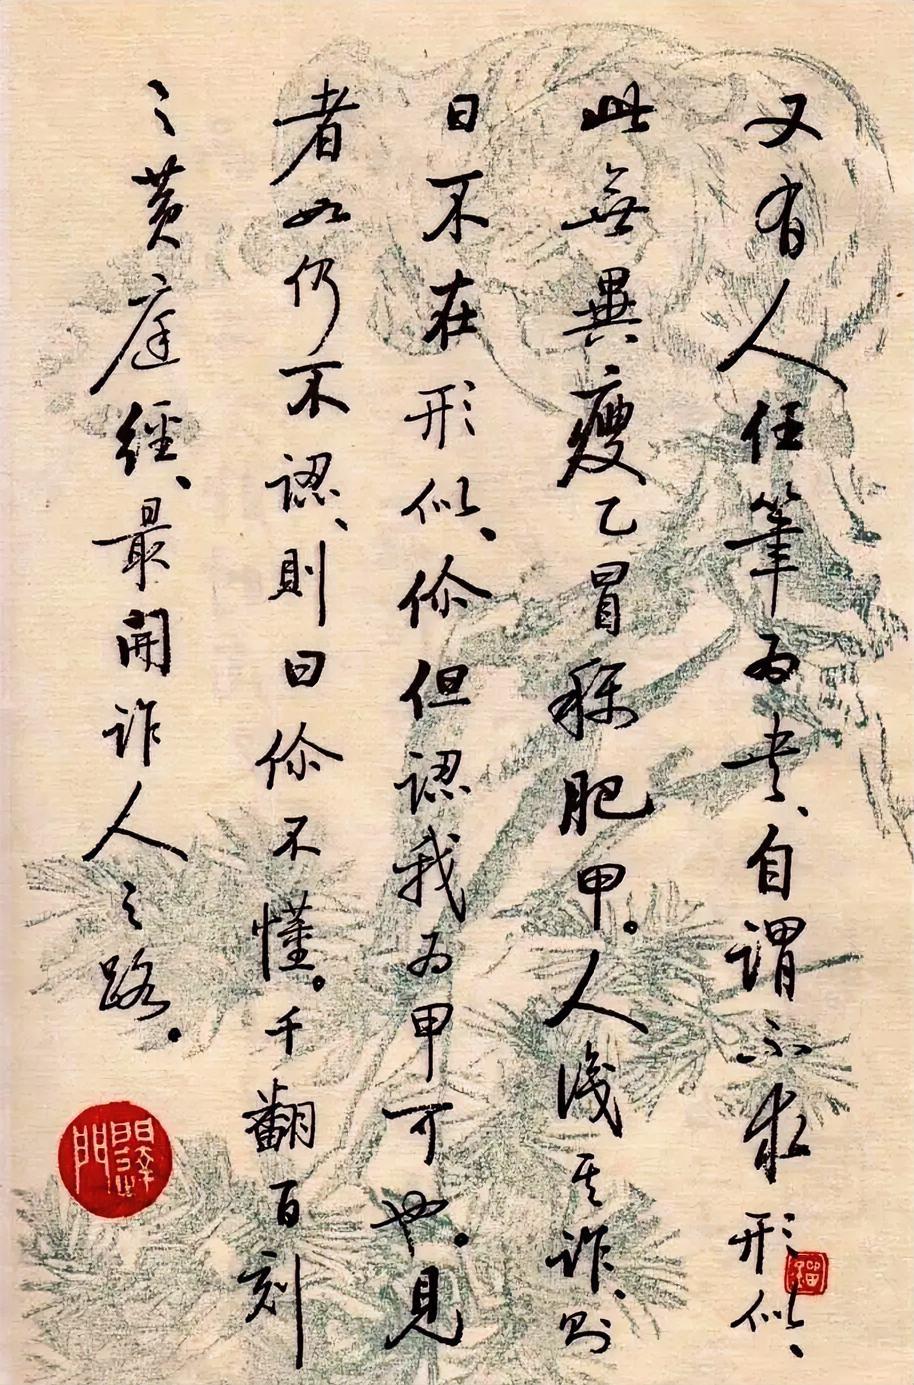 又有人任筆為書、自謂不求形似、
此無異瘦乙冒稱肥甲。人識其詐、則
曰不在形似、你但認我為甲可也。見
者如仍不認、則曰你不懂。千翻百刻
之黃庭經、最開詐人之路。